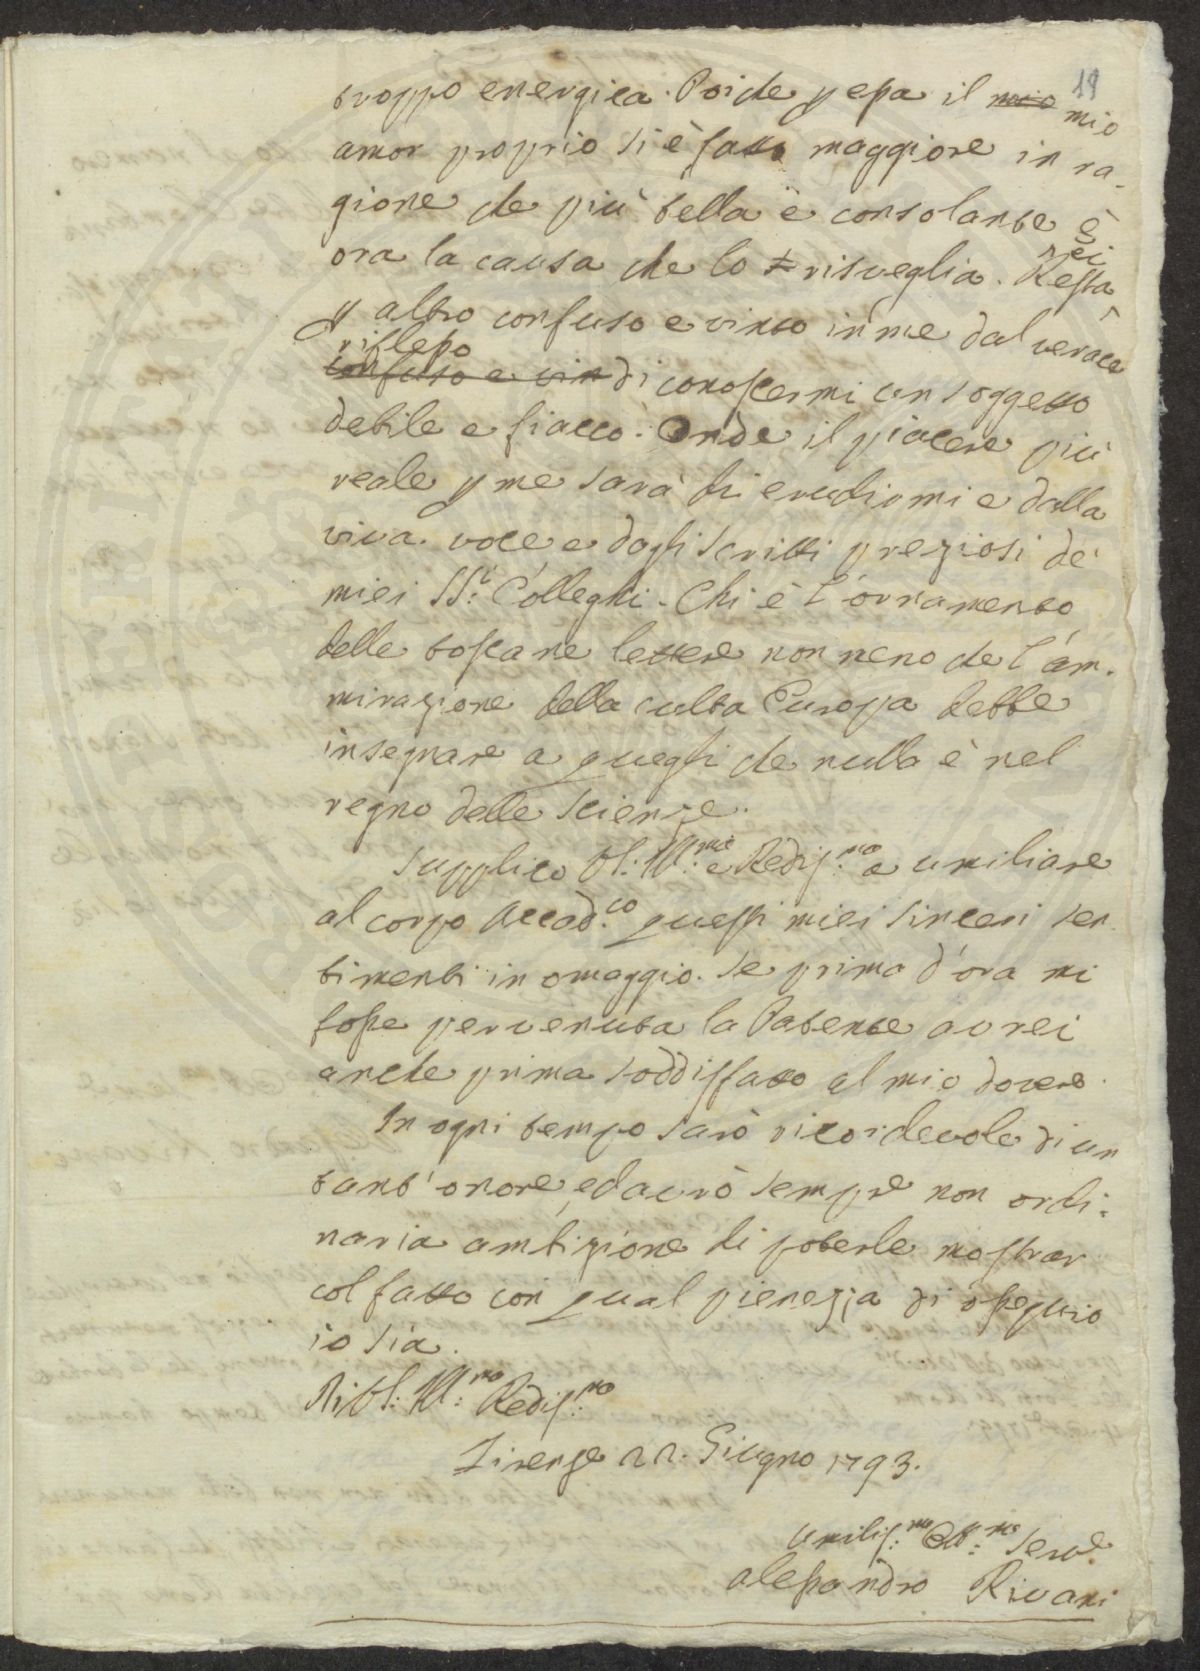 19
troppo energica. Poiche p essa il mio mio
amor proprio si è fatto maggiore in ra-
gione che più bella e consolante è
ora la causa che lo risveglia. Resta
p altro confuso e vinto in me dal verace
riflesso
confuso e vin di conoscermi un soggetto
debile e fiacco. Onde il piacere più
reale p me sarà di erudirmi e dalla
viva voce e dagli scritti preziosi de'
miei SS.i Colleghi. Chi è l'ornamento
delle toscane lettere non meno che l'am-
mirazione della culta Europa debbe
insegnare a quegli che nulla è nel
regno delle scienze.
Supplico Ill.mo e Redis.mo a umiliare
al corpo Accad.co questi miei sinceri sen-
timenti in omaggio. Se prima d'ora mi
fosse pervenuta la Patente avrei
anche prima soddisfatto al mio dovere.
In ogni tempo sarò ricordevole di un
tant'onore, ed avrò sempre non ordi-
naria ambizione di poterle mostrar
col fatto con qual pienezza di ossequio
io sia.
Di Ill.mo Redis.mo
Firenze 22. Giugno 1793.
Umilis.mo Obb.mo Serv.e
Alessandro Rivani